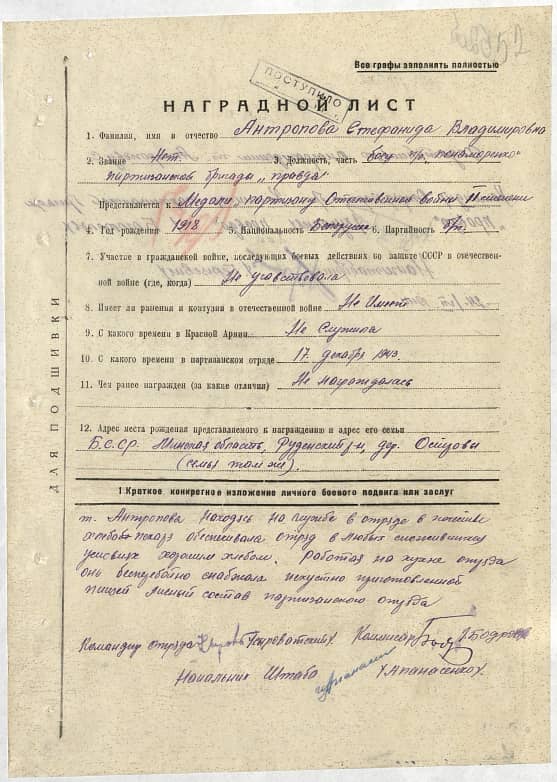 Все графы заполнять полностью
ПОСТУПИЛО
НАГРАДНОЙ ЛИСТ
1. Фамилия, имя и отчество Антропова Стефанида Владимировна
2. Звание Нет. 3. Должность, часть боец п/о. "пономоренко"
партизанской бригады "правда"
Представляется к Медали партизану Отечественной войны II степени
4. Год рождения 1918 5. Национальность Белоруска 6. Партийность б/п.
7. Участие в гражданской войне, последующих боевых действиях по защите СССР и отечествен-
ной войне (где, когда) Не участвовала
8. Имеет ли ранения и контузии в отечественной войне Не Имеет
9. С какого времени в Красной Армии Не Служила
10. С какого времени в партизанском отряде 17 декабря 1943.
11. Чем ранее награжден (за какие отличия) Не награждалась
12. Адрес места рождения представляемого к награждению и адрес его семьи
Б.С.С.р. Минская область, Руденский р-н, дер. Осцовы
(семья там же).
ДЛЯ ПОДШИВКИ
1 Краткое конкретное изложение личного боевого подвига или заслуг
т. Антропова находясь на службе в отряде в качестве
хлебопекаря обеспечивала отряд в любых сложившихся
условиях хорошим хлебом. Работая на кухне отряда
она бесперебойно снабжала искустно приготовленной
пищей личный состав партизанского отряда
Командир отряда Комиссар
Начальник Штаба /Апанасенко/.